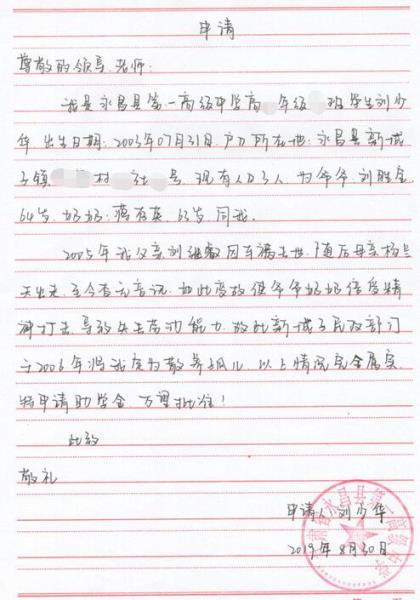 申请
尊敬的领导、老师:
我是永昌县第一高级中学高 年级 班学生刘少
华 出生日期:2003年07月31日,户口所在地:永昌县新城
子镇 村 社 号 现有人口3人,为爷爷 刘胜金
64岁、奶奶:蒋存英 63岁 同我。
2005年我父亲刘继 因车祸去世,随后母亲杨兰
天出走,至今杳无音讯,如此变故使爷爷奶奶倍受精
神打击,导致失去劳动能力,故此新城子民政部门
于2006年将我定为散养孤儿,以上情况完全属实,
特申请助学金 万望批准!
此致
敬礼
申请人:刘少华
2019年8月30日
甘肃省永昌县第一高级中学